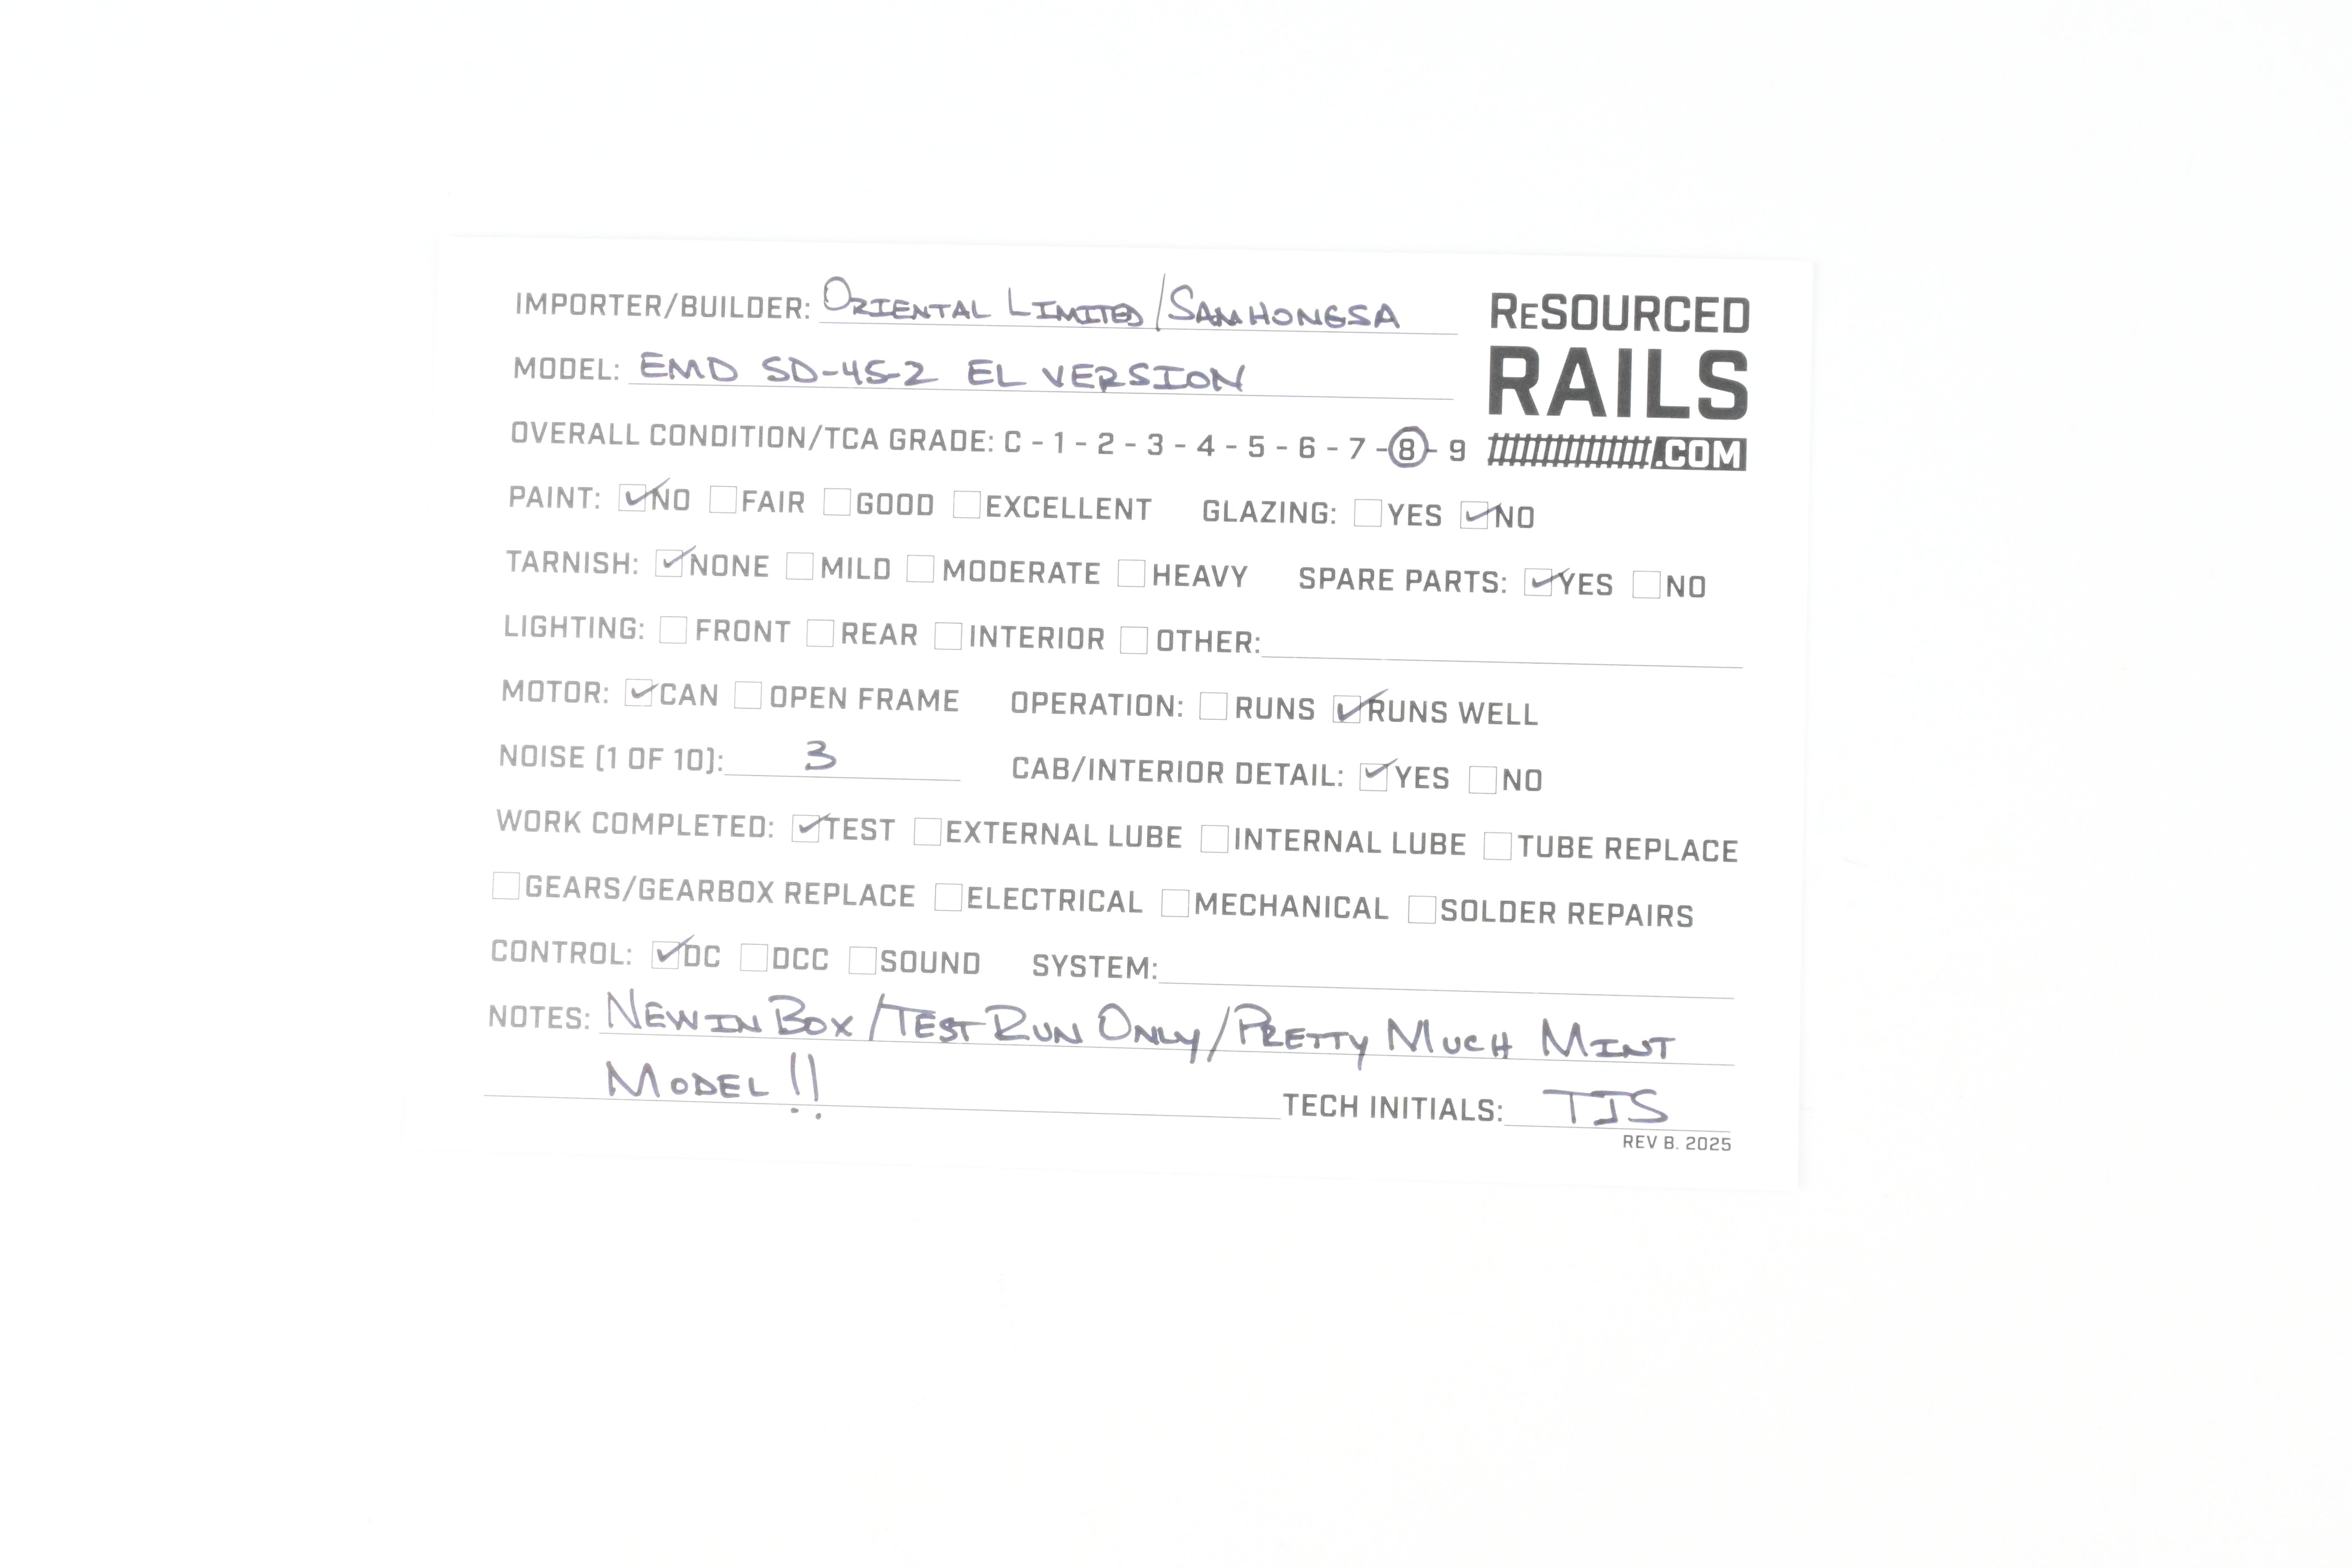 IMPORTER/BUILDER: ORIENTAL LIMITED/SAMHONGSA
ReSOURCED
RAILS
.COM
MODEL: EMD SD-45-2 EL VERSION
OVERALL CONDITION/TCA GRADE: C - 1 - 2 - 3 - 4 - 5 - 6 - 7 - 8 - 9
PAINT: ☑NO ☐FAIR ☐GOOD ☐EXCELLENT GLAZING: ☐YES ☑NO
TARNISH: ☑NONE ☐MILD ☐MODERATE ☐HEAVY SPARE PARTS: ☑YES ☐NO
LIGHTING: ☐FRONT ☐REAR ☐INTERIOR ☐OTHER:
MOTOR: ☑CAN ☐OPEN FRAME OPERATION: ☐RUNS ☑RUNS WELL
NOISE (1 OF 10): 3 CAB/INTERIOR DETAIL: ☑YES ☐NO
WORK COMPLETED: ☑TEST ☐EXTERNAL LUBE ☐INTERNAL LUBE ☐TUBE REPLACE
☐GEARS/GEARBOX REPLACE ☐ELECTRICAL ☐MECHANICAL ☐SOLDER REPAIRS
CONTROL: ☑DC ☐DCC ☐SOUND SYSTEM:
NOTES: NEW IN BOX/TEST RUN ONLY/PRETTY MUCH MINT
MODEL!! TECH INITIALS: TJS
REV B. 2025